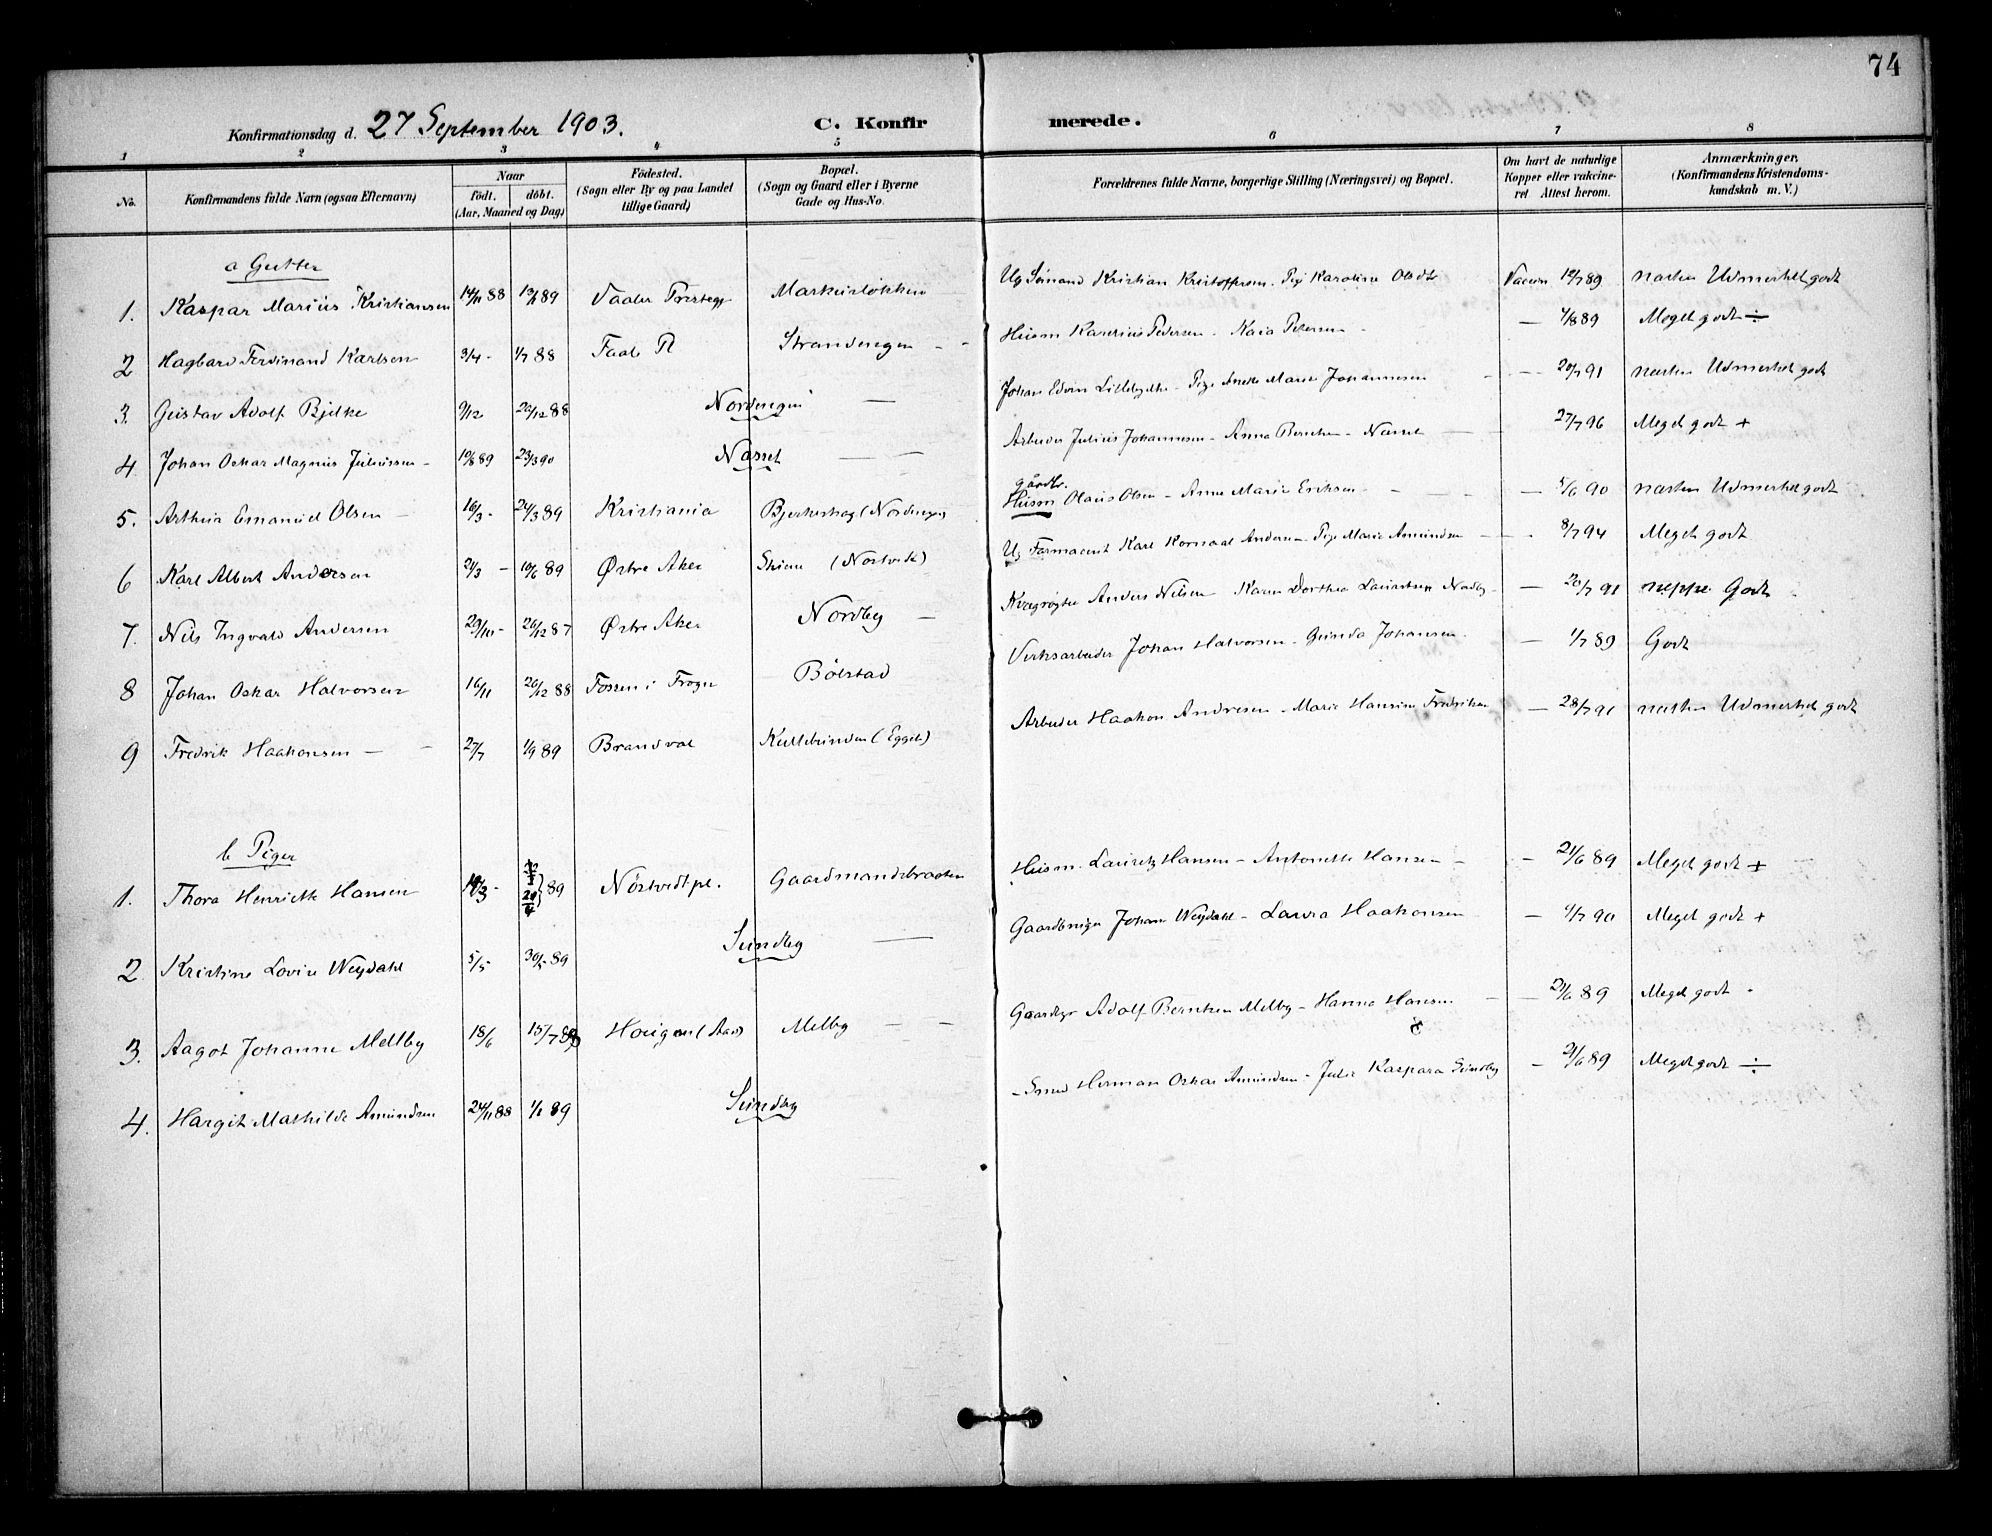 74
Konfirmationsdag d. 27 September 1903.
C. Konfirmerede.
1 2 3 4 5 6 7 8
No. Konfirmandens fulde Navn (ogsaa Efternavn) Naar født. døbt. (Aar, Maaned og Dag) Fødested. (Sogn eller By og paa Landet tillige Gaard) Bopæl. (Sogn og Gaard eller i Byerne Gade og Hus-No. Forældrenes fulde Navne, borgerlige Stilling (Næringsvei) og Bopæl. Om havt de naturlige Kopper eller vakcineret Attest herom. Anmærkninger. (Konfirmandens Kristendomskundskab m. V.)
a Gutter
1. Kaspar Marius Kristiansen 14/11 88 89 Vaaler Markusløkken Ug Sømand Kristian Kristoffersen. Pige Karoline Vaccin 12/7 89 næsten Udmerket godt
2 Hagbard Ferdinand Karlsen 3/4 - 1/7 88 Strandengen - - Husm Pedersen - Kaia Petersen - — 4/8 89 Meget godt ÷
3. Gustav Adolf Bjelke 9/12 26/12 88 Nordengen — Johan Edvin - Pige Anette Marie Johannesen - — 20/7 91 næsten Udmerket godt
4 Johan Oskar Magnus Juliussen - 19/8 89 23/3 90 Næsset — Arbeider Julius Johannesen - Anna Berntsen - Næsset — 27/7 96 Meget godt +
5. Arthur Emanuel Olsen - 16/3 - 24/3 89 Kristiania Bjerkehag (Nordengen) gårdbr. Husm Olaus Olsen - Anne Marie Eriksen - — 5/6 90 næsten Udmerket godt
6 Karl Albert Andersen 21/3 - 10/6 89 Østre Aker Skiem (Nøstvedt) Ug Farmaceut Karl Andersen - Pige Marie Amundsen — 8/7 94 Meget godt
7. Nils Ingvald Andersen 29/10 - 26/12 87 Østre Aker Nordby — Kvægrøgter Anders Nilsen Karen Dorthea Lauritsen Nordby - — 20/7 91 neppe Godt
8 Johan Oskar Halvorsen 16/11 26/12 88 Fossen i Frogn Bølstad Verksarbeider Johan Halvorsen - Gunda Johansen - — 1/7 89 Godt
9 Fredrik Haakonsen — 27/7 1/9 89 Brandvol Kullebunden (Eggeb) Arbeider Haakon Andresen - Marie Hansine Fredriksen — 28/7 91 næsten Udmerket godt
b Piger
1. Thora Henriette Hansen 19/3 - 89 Nøstvedtpl. Gaardmandsbraaten Husm. Lauritz Hansen - Antonette Hansen - — 21/6 89 Meget godt +
2. Kristine Lovise Weydahl 5/5 30/5 89 Sundby — Gaardbruger Johan Weydahl - Laura Haakonsen — 4/7 90 Meget godt +
3. Aagot Johanne Mellby 18/6 15/7 88 Haugen (Aas) Melby - - Gaardbgr Adolf Berntsen Melby - Hanna Hansen — 21/6 89 Meget godt -
4. Hargit Mathilde Amundsen 24/11 88 1/1 89 Sundby Smed Herman Oskar Amundsen - Julie Kaspara Sundby — 21/6 89 Meget godt ÷